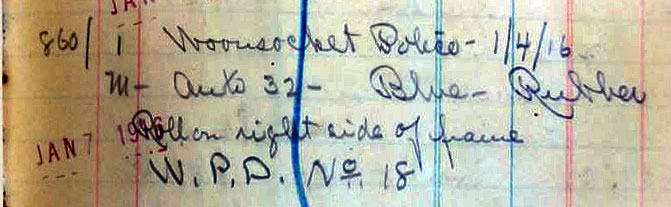 JAN
860/ 1 Woonsocket Police - 1/4/16
M - Auto 32 - Blue - Rubber
JAN 7 1916 Roll on right side of frame
W.P.D. No. 18